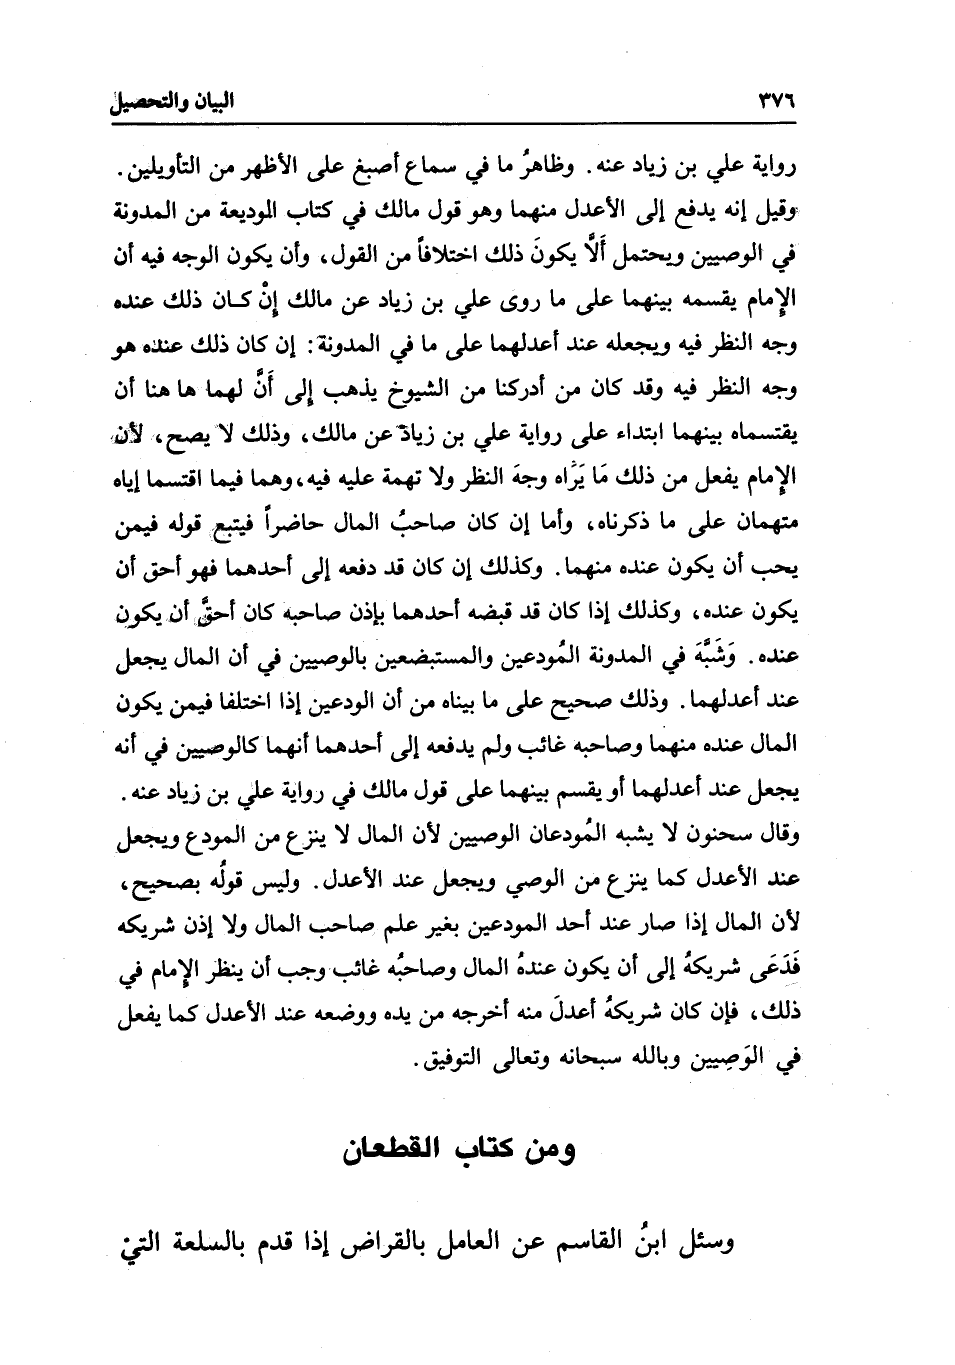 ٣٧٦ البيان والتحصيل
رواية علي بن زياد عنه. وظاهرُ ما في سماع أصبغ على الأظهر من التأويلين.
وقيل إنه يدفع إلى الأعدل منهما وهو قول مالك في كتاب الوديعة من المدونة
في الوصيين ويحتمل ألَّا يكونَ ذلك اختلافاً من القول، وأن يكون الوجه فيه أن
الإمام يقسمه بينهما على ما روى علي بن زياد عن مالك إنْ كان ذلك عنده
وجه النظر فيه ويجعله عند أعدلهما على ما في المدونة: إن كان ذلك عنده هو
وجه النظر فيه وقد كان من أدركنا من الشيوخ يذهب إلى أنَّ لهما ها هنا أن
يقتسماه بينهما ابتداء على رواية علي بن زياد عن مالك، وذلك لا يصح، لأن
الإمام يفعل من ذلك مَا يَرَاه وجهَ النظر ولا تهمة عليه فيه، وهما فيما اقتسما إياه
متهمان على ما ذكرناه، وأما إن كان صاحبُ المال حاضراً فيتبع قوله فيمن
يحب أن يكون عنده منهما. وكذلك إن كان قد دفعه إلى أحدهما فهو أحق أن
يكون عنده، وكذلك إذا كان قد قبضه أحدهما بإذن صاحبه كان أحقَّ أن يكون
عنده. وَشَبَّهَ في المدونة المُودعين والمستبضعين بالوصيين في أن المال يجعل
عند أعدلهما. وذلك صحيح على ما بيناه من أن الودعين إذا اختلفا فيمن يكون
المال عنده منهما وصاحبه غائب ولم يدفعه إلى أحدهما أنهما كالوصيين في أنه
يجعل عند أعدلهما أو يقسم بينهما على قول مالك في رواية علي بن زياد عنه.
وقال سحنون لا يشبه المُودعان الوصيين لأن المال لا ينزع من المودع ويجعل
عند الأعدل كما ينزع من الوصي ويجعل عند الأعدل. وليس قولُه بصحيح،
لأن المال إذا صار عند أحد المودعين بغير علم صاحب المال ولا إذن شريكه
فَدَعَى شريكهُ إلى أن يكون عندهُ المال وصاحبُه غائب وجب أن ينظر الإمام في
ذلك، فإن كان شريكهُ أعدلَ منه أخرجه من يده ووضعه عند الأعدل كما يفعل
في الوَصِيين وبالله سبحانه وتعالى التوفيق.
ومن كتاب القطعان
وسئل ابنُ القاسم عن العامل بالقراض إذا قدم بالسلعة التيْ